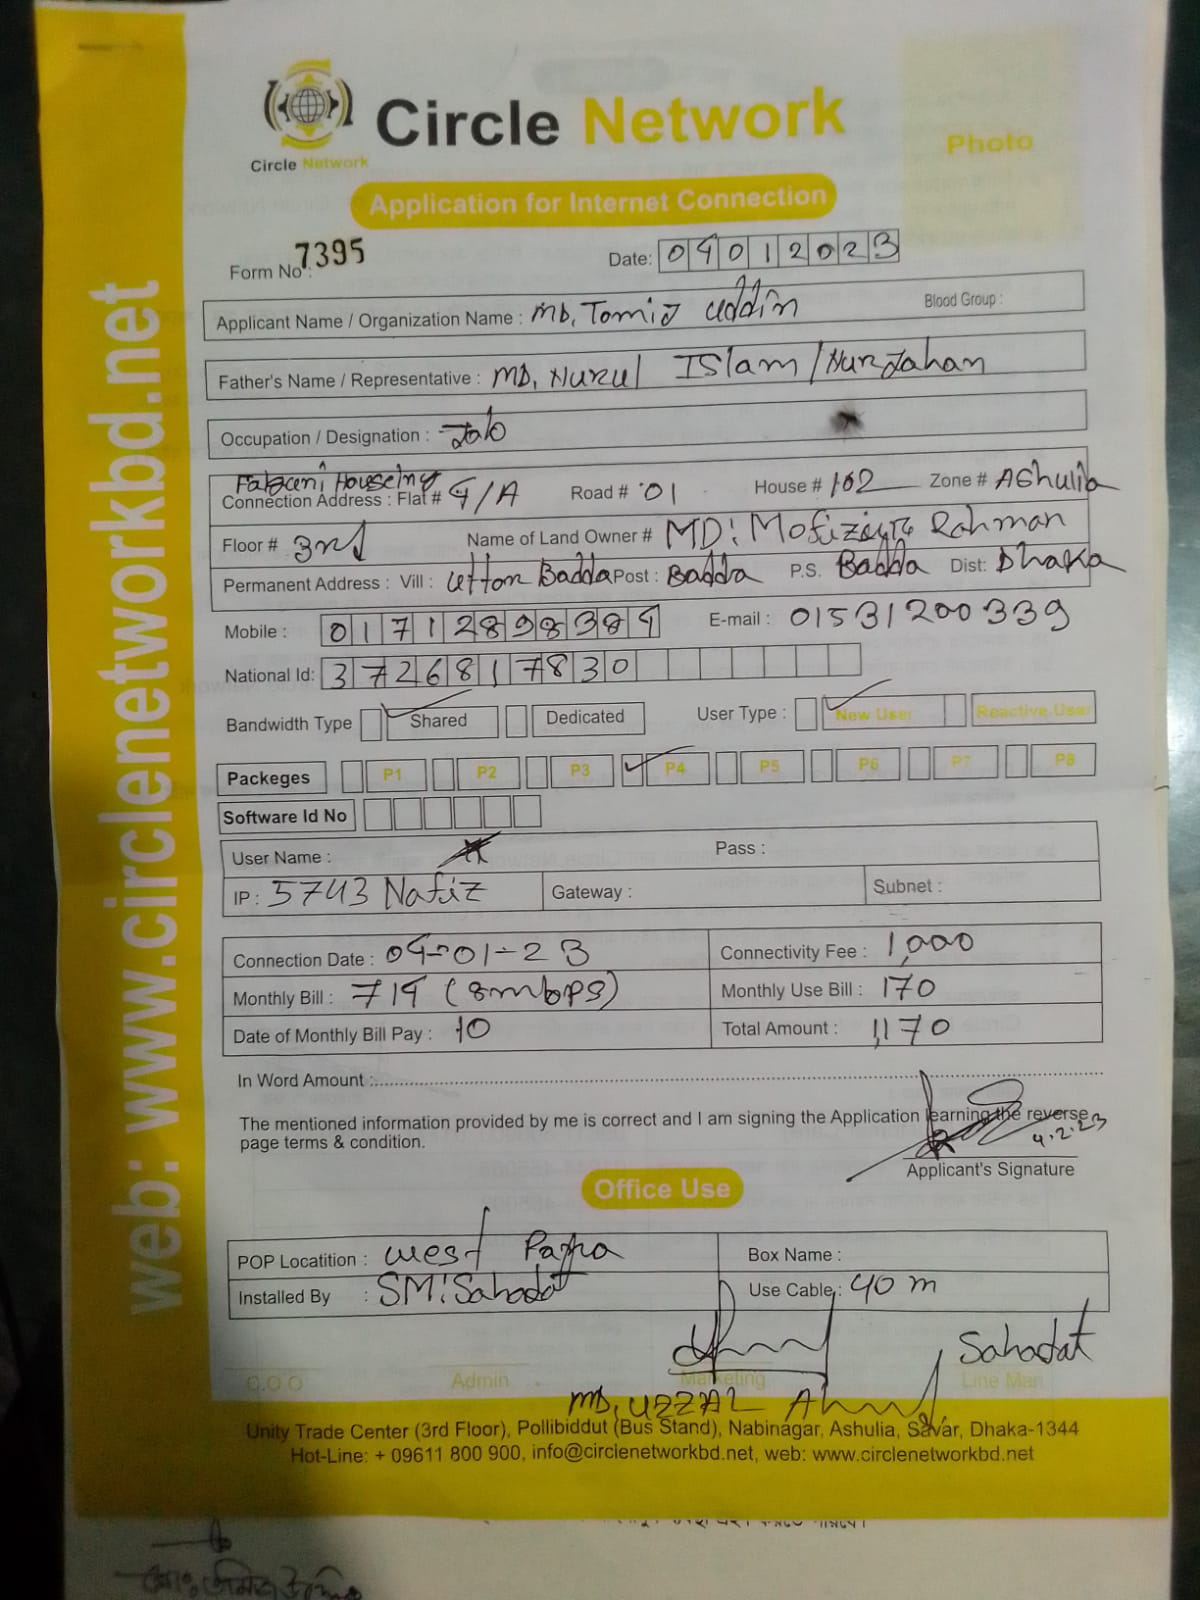 web: www.circlenetworkbd.net
Circle Network
Circle Network
Photo
Application for Internet Connection
Form No : 7395
Date: 04012023
Applicant Name / Organization Name : MD, Tomiz uddin
Blood Group :
Father's Name / Representative : MD, Nurul Islam / Nurjahan
Occupation / Designation : Job
Housing
Connection Address : Flat # 4/A Road # 01 House # 102 Zone # Ashulia
Floor # 3rd Name of Land Owner # MD: Rahman
Permanent Address : Vill : Utton Badda Post : Badda P.S. Badda Dist: Dhaka
Mobile : 01712898384 E-mail : 01531200339
National Id: 3726817830
Bandwidth Type Shared Dedicated User Type : New User Reactive User
Packeges P1 P2 P3 P4 P5 P6 P7 P8
Software Id No
User Name : Pass :
IP : 5743 Nafiz Gateway : Subnet :
Connection Date : 04-01-23 Connectivity Fee : 1,000
Monthly Bill : 714 (8mbps) Monthly Use Bill : 170
Date of Monthly Bill Pay : 10 Total Amount : 1,170
In Word Amount :
The mentioned information provided by me is correct and I am signing the Application learning the reverse
page terms & condition.
4.2.23
Applicant's Signature
Office Use
POP Locatition : West Para Box Name :
Installed By : SM: Sahadat Use Cable : 40 m
Sahadat
C.O.O Admin Marketing Line Man
MD, UZZAL Ahmed
Unity Trade Center (3rd Floor), Pollibiddut (Bus Stand), Nabinagar, Ashulia, Savar, Dhaka-1344
Hot-Line: + 09611 800 900, info@circlenetworkbd.net, web: www.circlenetworkbd.net